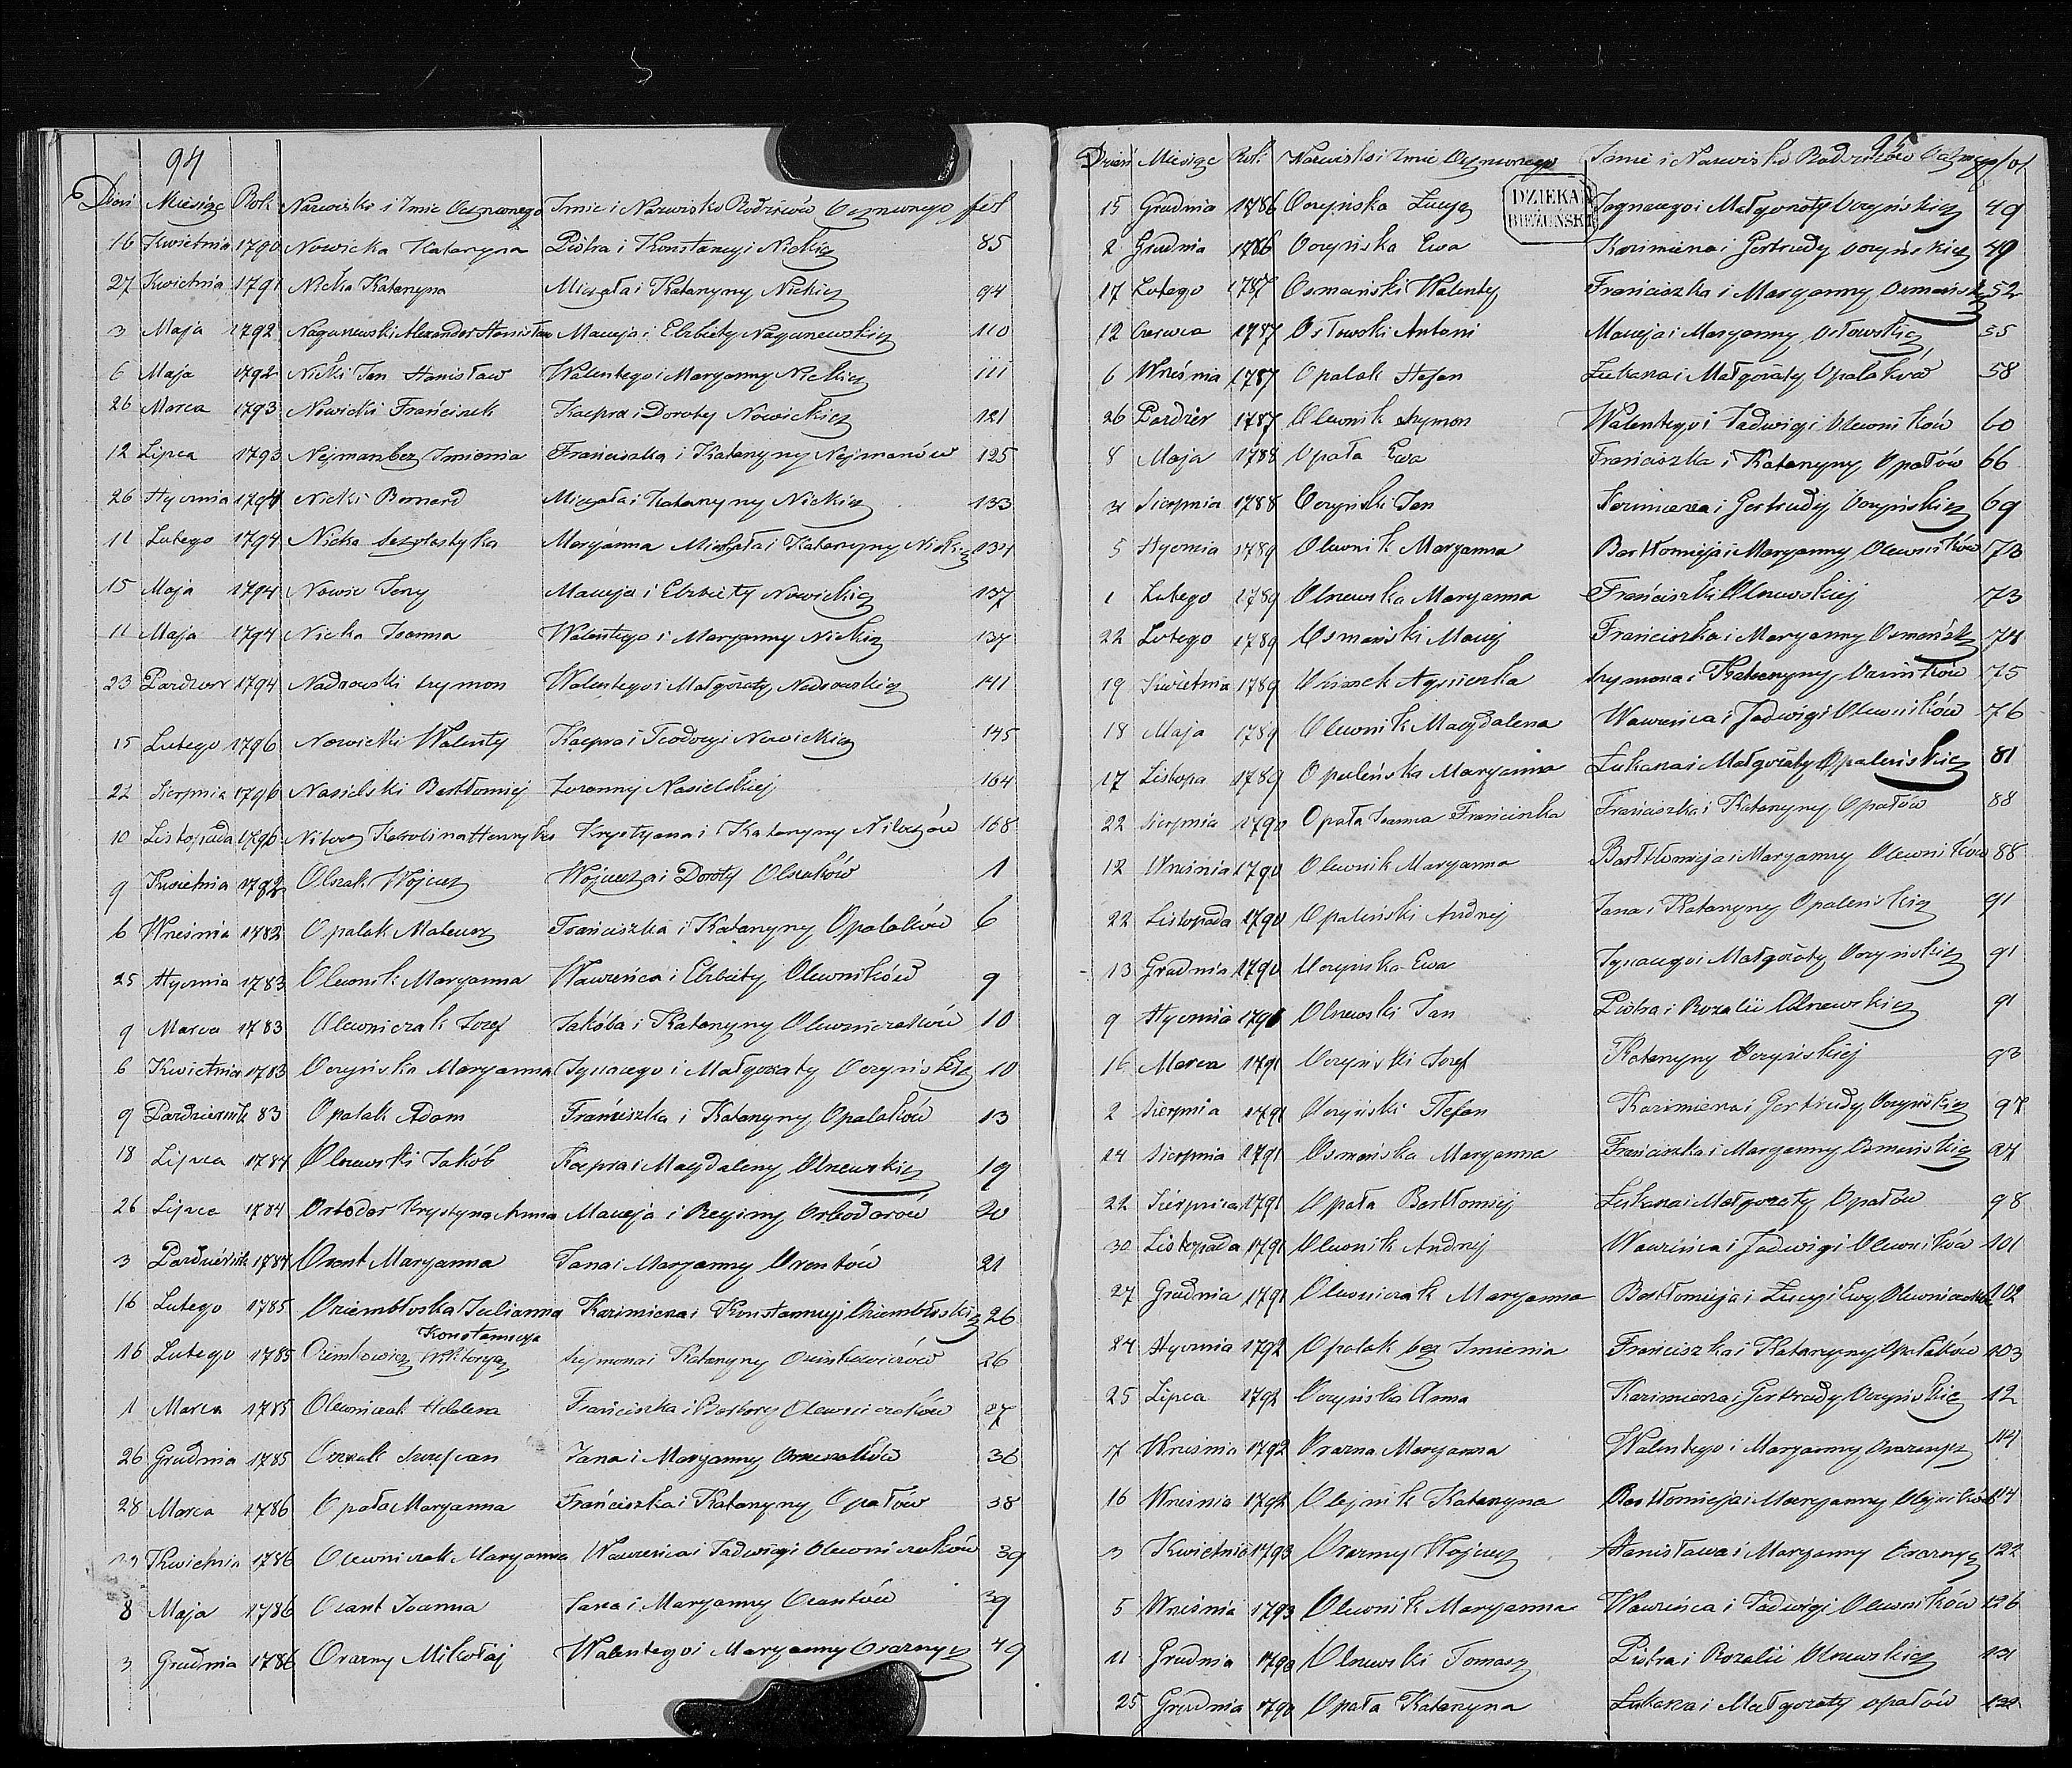 94
Dzień Miesiąc Rok Nazwisko i Imie Ocznionego Imie i Nazwisko Rodziców Ocznionego fol
16 Kwietnia 1790 Nowicka Katarzyna Piotra i Konstancyi Nickich 85
27 Kwietnia 1791 Nicka Katarzyna Michała i Katarzyny Nickich 94
3 Maja 1792 Macieja i Elzbiety 110
6 Maja 1792 Nicki Jan Stanisław Walentego i Maryanny Nickich 111
26 Marca 1793 Nowicki Franciszek Kacpra i Doroty Nowickich 121
12 Lipca 1793 Nejman bez Imienia Franciszka i Katarzyny Nejmanów 125
26 Stycznia 1794 Nicki Bernard Michała i Katarzyny Nickich 133
11 Lutego 1794 Nicka Maryanna Michała i Katarzyny Nickich 134
15 Maja 1794 Nowic Jerzy Macieja i Elzbiety Nowickich 137
11 Maja 1794 Nicka Joanna Walentego i Maryanny Nickich 137
23 1794 Nadrowski Szymon Walentego i Małgorzaty Nadrowskich 141
15 Lutego 1796 Nowicki Walenty Kacpra i Teodozyi Nowickich 145
22 Sierpnia 1796 Nasielski Bartłomiej Zuzanny Nasielskiej 164
10 Listopada 1796 Karolina Henryka Krystyana i Katarzyny 168
9 Kwietnia 1782 Olszak Wojciech Wojciecha i Doroty Olszaków 1
6 Września 1782 Opalak Mateusz Franciszka i Katarzyny Opalaków 6
25 Stycznia 1783 Olewnik Maryanna Wawrzeńca i Elzbiety Olewników 9
9 Marca 1783 Olewniczak Jozef Jakóba i Katarzyny Olewniczaków 10
6 Kwietnia 1783 Oczyńska Maryanna Ignacego i Małgorzaty Oczyńskich 10
9 83 Opalak Adam Franciszka i Katarzyny Opalaków 13
18 Lipca 1784 Olszewski Jakób Kacpra i Magdaleny Olszewskich 19
26 Lipca 1784 Krystyna Anna Macieja i Reginy 20
3 1784 Maryanna Jana i Maryanny 21
16 Lutego 1785 Julianna Kazimierza i Konstancyi 26
Konstancya
16 Lutego 1785 Wiktorya Szymona i Katarzyny 26
1 Marca 1785 Olewniczak Helena Franciszka i Barbary Olewniczaków 27
26 Grudnia 1785 Jana i Maryanny 36
28 Marca 1786 Opała Maryanna Franciszka i Katarzyny Opałów 38
Kwietnia 1786 Olewniczak Maryanna Wawrzeńca i Jadwigi Olewniczaków 39
8 Maja 1786 Joanna Jana i Maryanny 39
3 Grudnia 1786 Mikołaj Walentego i Maryanny 49
Dzień Miesiąc Rok Nazwisko i Imie Ocznionego Imie i Nazwisko Rodziców fol
DZIEKAN
BIEŻUŃSKI
15 Grudnia 1786 Oczyńska Łucya Ignacego i Małgorzaty Oczyńskich 49
2 Grudnia 1786 Oczyńska Ewa Kazimierza i Gertrudy Oczyńskich 49
17 Lutego 1787 Osmański Walenty Franciszka i Maryanny Osmańskich 52
12 Czerwca 1787 Osłowski Antoni Macieja i Maryanny Osłowskich 55
6 Września 1787 Opalak Stefan Łukasza i Małgorzaty Opalaków 58
26 Paździer 1787 Olewnik Szymon Walentego i Jadwigi Olewników 60
8 Maja 1788 Opała Ewa Franciszka i Katarzyny Opałów 66
Sierpnia 1788 Oczyński Jan Kazimierza i Gertrudy Oczyńskich 69
5 Stycznia 1789 Olewnik Maryanna Bartłomieja i Maryanny Olewników 73
1 Lutego 1789 Olszewska Maryanna Franciszki Olszewskiej 73
22 Lutego 1789 Osmański Maciej Franciszka i Maryanny Osmańskich 74
19 Kwietnia 1789 Agnieszka Szymona i Katarzyny 75
18 Maja 1789 Olewnik Magdalena Wawrzeńca i Jadwigi Olewników 76
17 Listopa 1789 Opaleńska Maryanna Łukasza i Małgorzaty Opaleńskich 81
22 Sierpnia 1790 Opała Joanna Franciszka Franciszka i Katarzyny Opałów 88
12 Września 1790 Olewnik Maryanna Bartłomieja i Maryanny Olewników 88
22 Listopada 1790 Opaleński Andrzej Jana i Katarzyny Opaleńskich 91
13 Grudnia 1790 Oczyńska Ewa Ignacego i Małgorzaty Oczyńskich 91
9 Stycznia 1791 Olszewski Jan Piotra i Rozalii Olszewskich 91
16 Marca 1791 Oczyński Jozef Katarzyny Oczyńskiej 93
2 Sierpnia 1791 Oczyński Stefan Kazimierza i Gertrudy Oczyńskich 97
14 Sierpnia 1791 Osmańska Maryanna Franciszka i Maryanny Osmańskich 97
22 Sierpnia 1791 Opała Bartłomiej Łukasza i Małgorzaty Opałów 98
30 Listopada 1791 Olewnik Andrzej Wawrzeńca i Jadwigi Olewników 101
27 Grudnia 1791 Olewniczak Maryanna Bartłomieja i 102
24 Stycznia 1792 Opalak bez Imienia Franciszka i Katarzyny Opalaków 103
25 Lipca 1792 Oczyńska Anna Kazimierza i Gertrudy Oczyńskich 12
17 Września 1792 Maryanna Walentego i Maryanny 114
16 Września 1792 Olejnik Katarzyna Bartłomieja i Maryanny Olejników 114
3 Kwietnia 1793 Wojciech Stanisława i Maryanny 122
5 Września 1793 Olewnik Maryanna Wawrzeńca i Jadwigi Olewników 126
11 Grudnia 1793 Olszewski Tomasz Piotra i Rozalii Olszewskich 131
25 Grudnia 1793 Opała Katarzyna Łukasza i Małgorzaty opałów